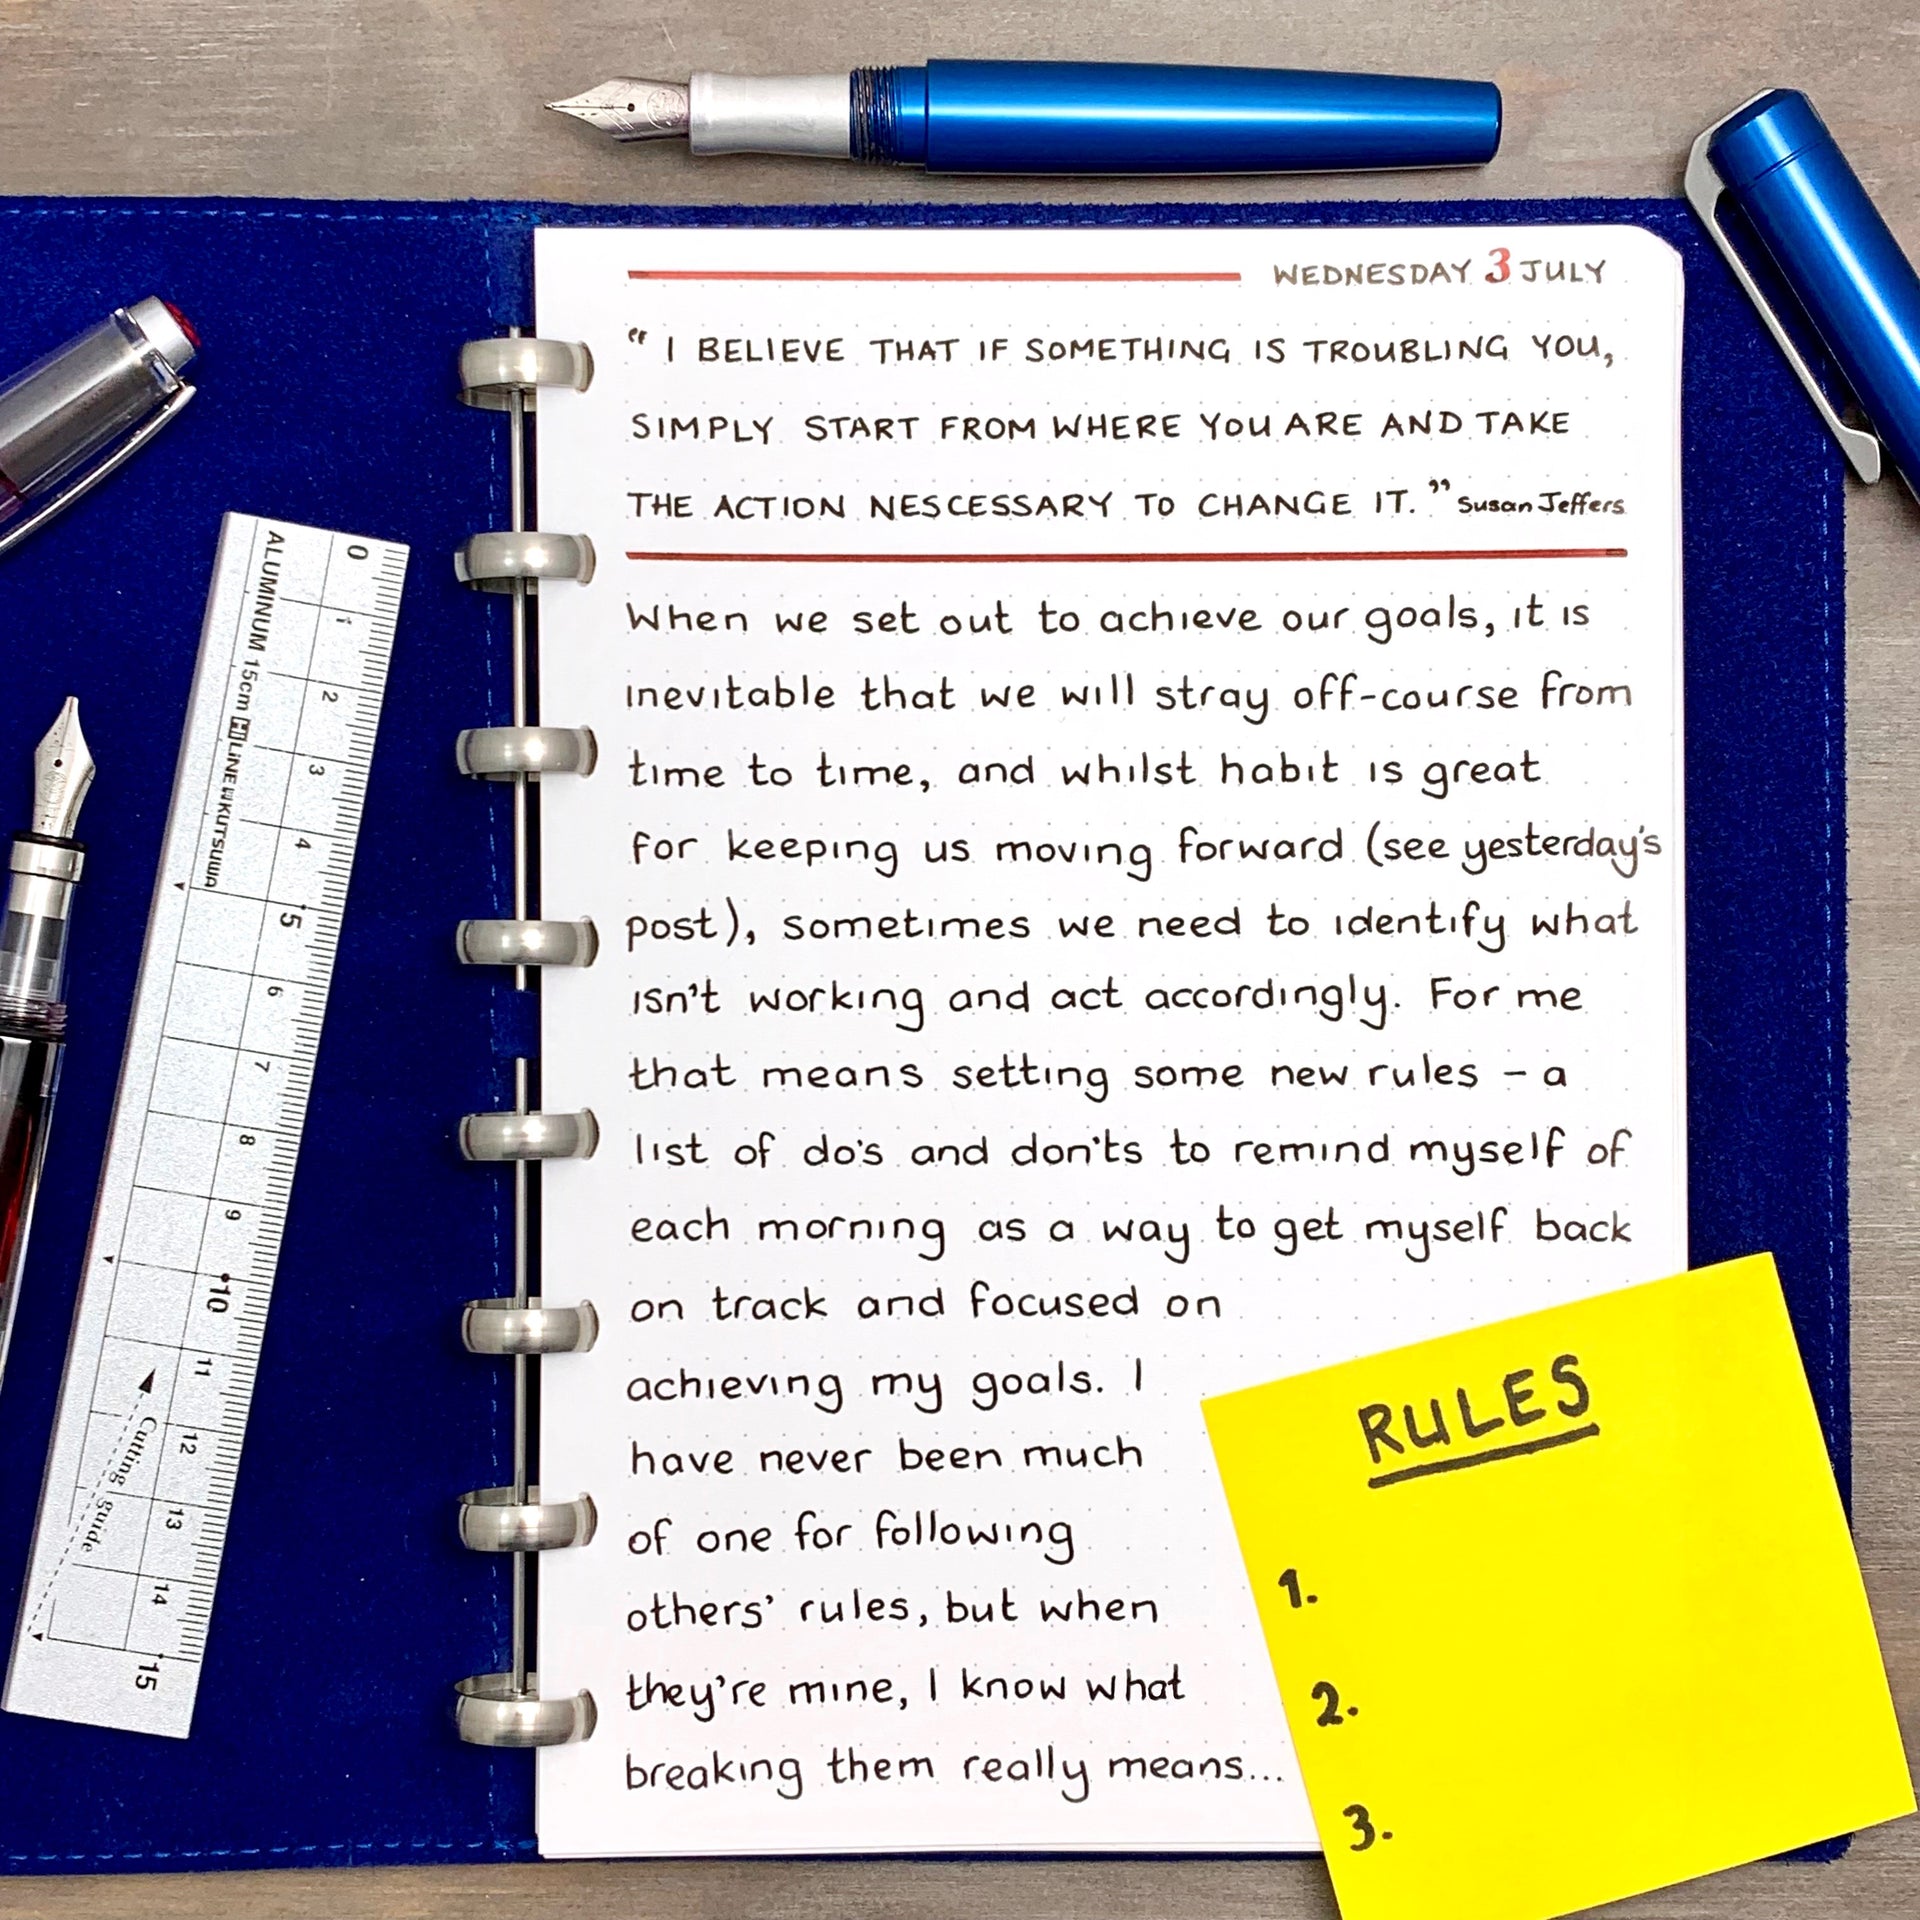 WEDNESDAY 3 JULY
“ I BELIEVE THAT IF SOMETHING IS TROUBLING YOU,
SIMPLY START FROM WHERE YOU ARE AND TAKE
THE ACTION NESCESSARY TO CHANGE IT. ” Susan Jeffers
When we set out to achieve our goals, it is
inevitable that we will stray off-course from
time to time, and whilst habit is great
for keeping us moving forward (see yesterday's
post), sometimes we need to identify what
isn't working and act accordingly. For me
that means setting some new rules – a
list of do's and don'ts to remind myself of
each morning as a way to get myself back
on track and focused on
achieving my goals. I
have never been much
of one for following
others' rules, but when
they're mine, I know what
breaking them really means...
RULES
1.
2.
3.
ALUMINUM 15cm LINE KUTSUWA
0
1
2
3
4
5
6
7
8
9
10
11
12
13
14
15
Cutting guide